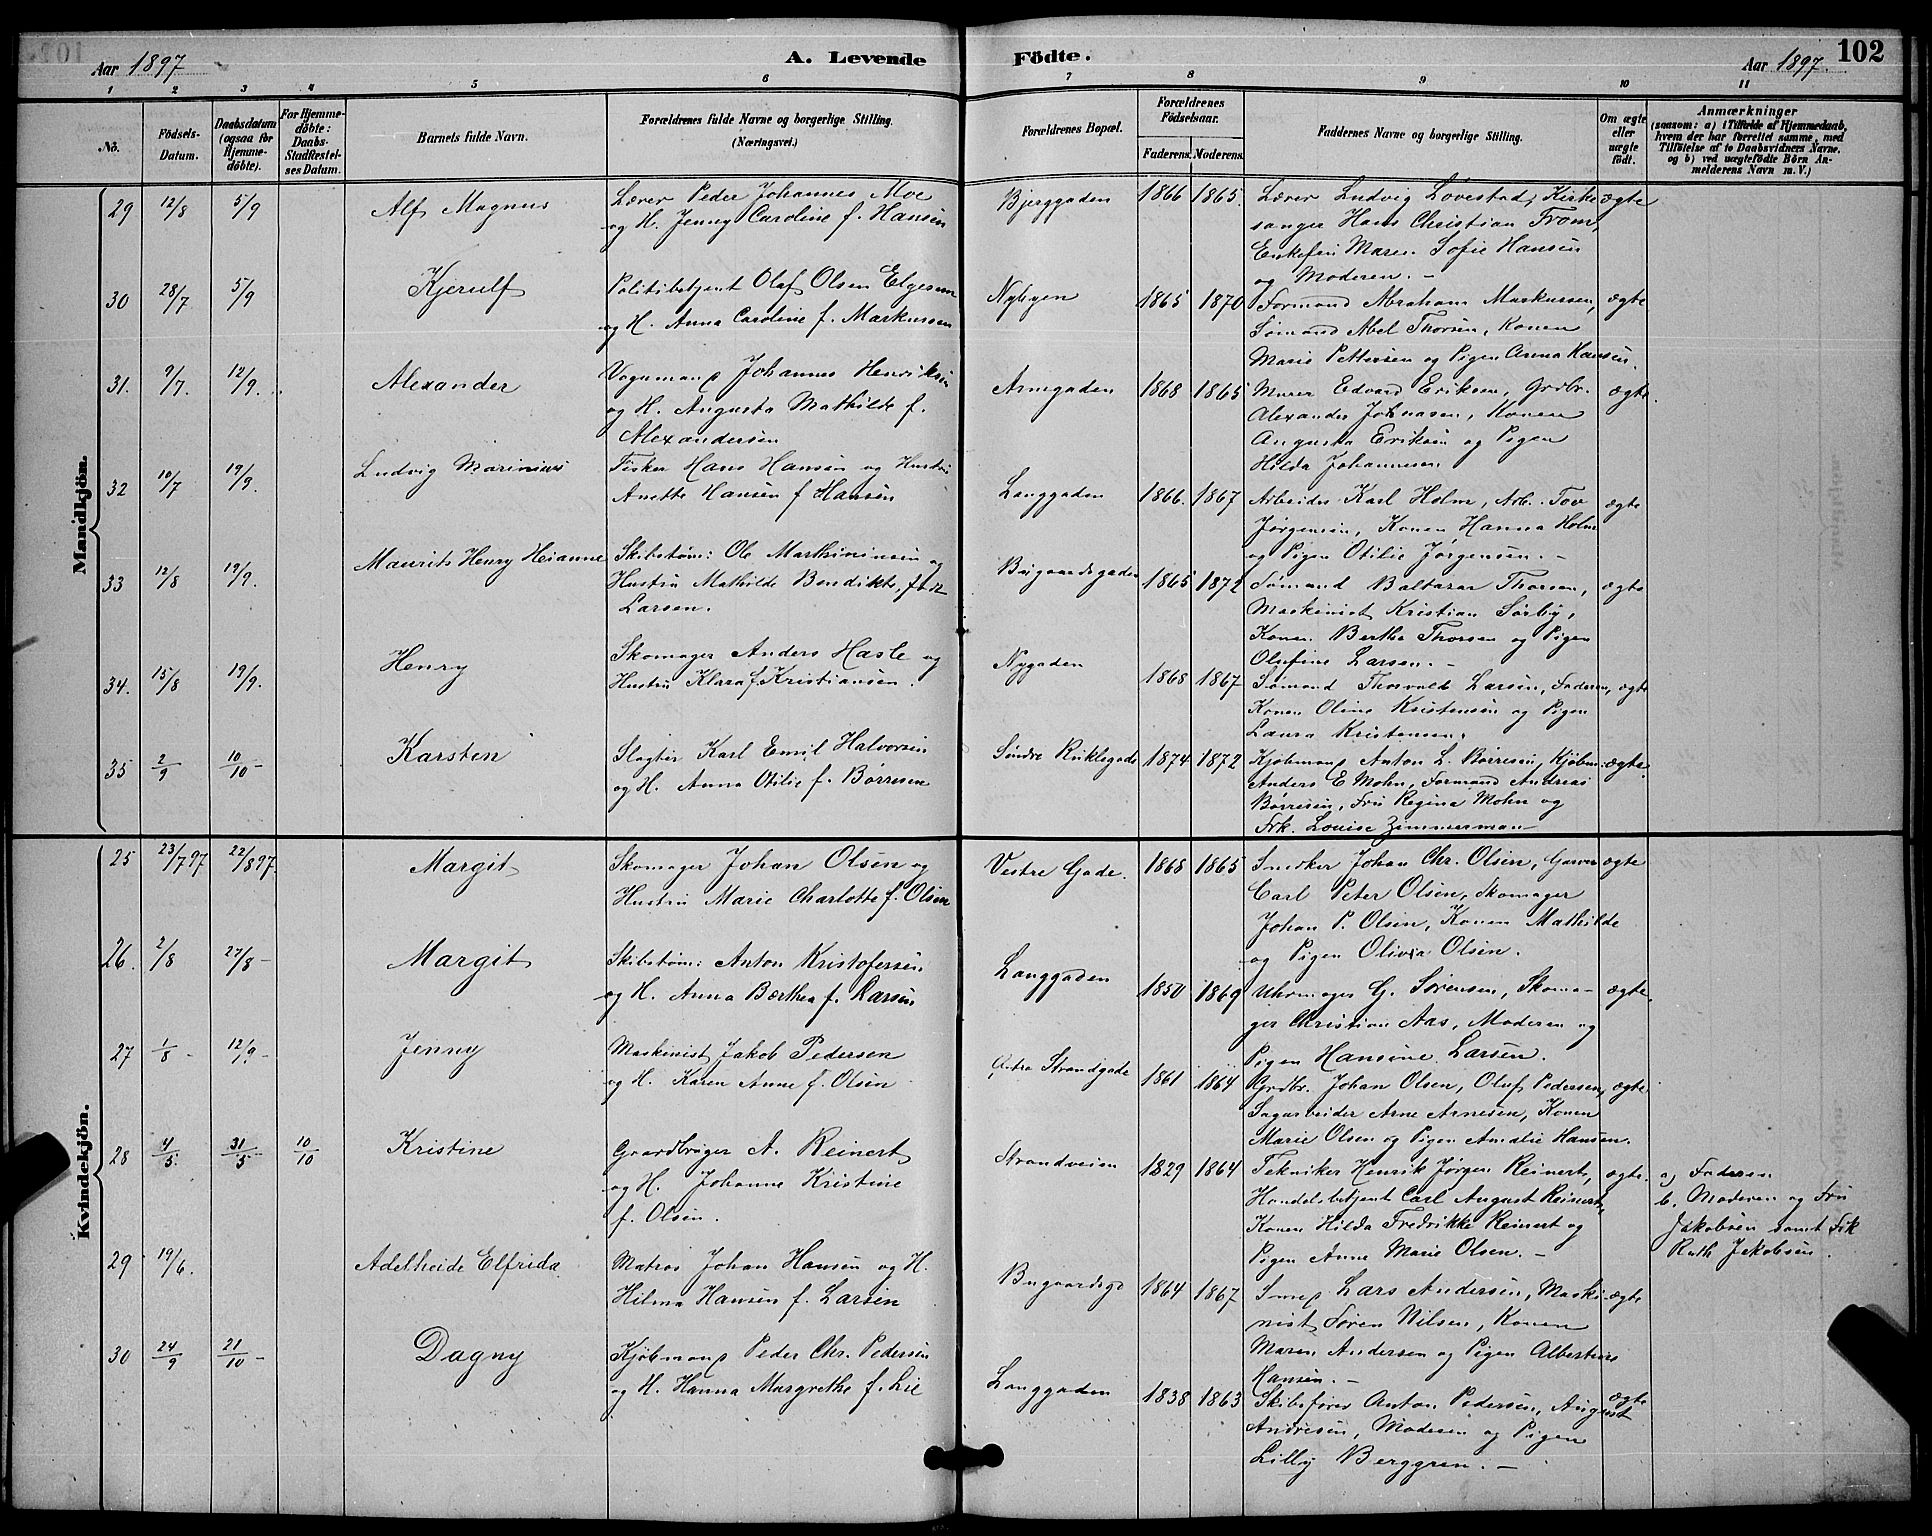 Aar 1897
A. Levende
Födte.
Aar 1897.
102
1 2 3 4 5 6 7 8 9 10 11
No.
Födsels-Datum.
Daabsdatum (ogsaa for Hjemmedöbte).
For Hjemmedöbte: Daabs-Stadfestelses Datum.
Barnets fulde Navn.
Forældrenes fulde Navne og borgerlige Stilling. (Næringsvei.)
Forældrenes Bopæl.
Forældrenes Födselsaar.
Faderens. Moderens.
Faddernes Navne og borgerlige Stilling.
Om ægte eller uægte födt.
Anmærkninger
(saasom: a) i Tilfælde af Hjemmedaab, hvem der har forrettet samme, med Tilföielse af to Daabsvidners Navne, og b) ved uægtefödte Börn Anmelderens Navn m. V.)
Mandkjön.
29 12/8 5/9 Alf Magnus
Lærer Peder Johannes Moe
og H. Jenny Caroline f. Hansen
Bjerggaden 1866 1865.
Lærer Ludvig Lövestad, Kirke
sanger Hans Christian From,
Enkefru Maren Sofie Hansen
og Moderen. –
ægte
30 28/7. 5/9 Kjerulf
Politibetjent Olaf Olsen Elgesem
og H. Anna Caroline f. Markussen
Nybyen 1865 1870
Formand Abraham Markussen,
Sømand Abel Thorsen, Konen
Marie Pettersen og Pigen Anna Hansen.
ægte
31. 9/7. 12/9. Alexander
Vognmand Johannes Henriksen
og H. Augusta Mathilde f.
Alexandersen
Arnegaden 1868 1865
Murer Edvard Eriksen, Grdbr.
Alexander Johnasen, Konen
Augusta Eriksen og Pigen
Hilda Johannesen
ægte.
32 10/7 19/9. Ludvig Marinius
Fisker Hans Hansen og Hustru
Anette Hansen f. Hansen
Langgaden 1866. 1867
Arbeider Karl Holm, Arb. Tov
Jørgensen, Konen Hanna Holm
og Pigen Otilie Jørgensen. –
ægte
33 12/8 19/9. Maurits Henry Heianne
Skibstøm: Ole Martininsen og
Hustru Mathilde Bendikte, født
Larsen.
Bugaardsgaden 1865 1872
Sømand Baltazar Thorsen,
Maskinist Kristian Sørby,
Konen Berthe Thorsen og Pigen
Olufine Larsen. –
ægte
34. 15/8 19/9. Henry
Skomager Anders Hasle og
Hustru Klara f. Kristiansen.
Nygaden 1868 1867
Sømand Thorvald Larsen, Faderen,
Konen Oline Kristensen og Pigen
Laura Kristensen.
ægte
35 2/9 10/10 – Karsten
Slagter Karl Emil Halvorsen
og H. Anna Otilie f. Børresen
Søndre 1874 1872
Kjøbmand Anton L. Børresen, Kjøbm.
Anders E Mohn, Formand Andreas
Børresen, Fru Regina Mohn og
Frk. Louise Zimmerman
ægte.
Kvindekjön.
25 23/7 97 22/8 97. Margit
Skomager Johan Olsen og
Hustru Marie Charlotte f. Olsen
Vestre Gade. 1868 1865
Snedker Johan Chr. Olsen, Garver
Carl Peter Olsen, Skomager
Johan P. Olsen, Konen Mathilde
og Pigen Olivia Olsen.
ægte
26. 2/8 27/8 – Margit
Skibstøm: Anton Kristofersen
og H. Anna Berthea f. Larsen
Langgaden 1850 1869
Uhrmager G. Sørensen, Skoma-
ger Christian Aas, Moderen og
Pigen Hansine Larsen.
ægte.
27 1/8 – 12/9 – Jenny
Maskinist Jakob Pedersen
og H. Karen Anne f. Olsen
Østre Strandgade 1861 1864
Grdbr. Johan Olsen, Oluf Pedersen,
Sagarbeider Arne Arnesen, Konen
Marie Olsen og Pigen Amalie Hansen.
ægte
28 4/5. 31/5 10/10 Kristine
Gaardbruger A. Reinert
og H. Johanne Kristine
f. Olsen.
Strandveien 1829 1864
Tekniker Henrik Jørgen Reinert,
Handelsbetjent Carl August Reinert,
Konen Hilda Fredrikke Reinert og
Pigen Anne Marie Olsen. –
ægte.
a, Faderen
b. Moderen og Fru
Jakobsen samt Frk
Ruth Jakobsen.
29 19/6. Adelheide Elfrida
Matros Johan Hansen og H.
Hilma Hansen f. Larsen
Bugaardsgd 1864 1867
Smed Lars Andersen, Maski-
nist Søren Nilsen, Konen
Maren Andersen og Pigen
Hansen. –
ægte
30 24/9 21/10 – Dagny
Kjøbmand Peder Chr. Pedersen
og H. Hanna Margrethe f. Lie
Langgaden 1838 1863
Skibsfører Anton Pedersen, August
Andresen, Moderen og Pigen
Lilly Berggren. –
ægte